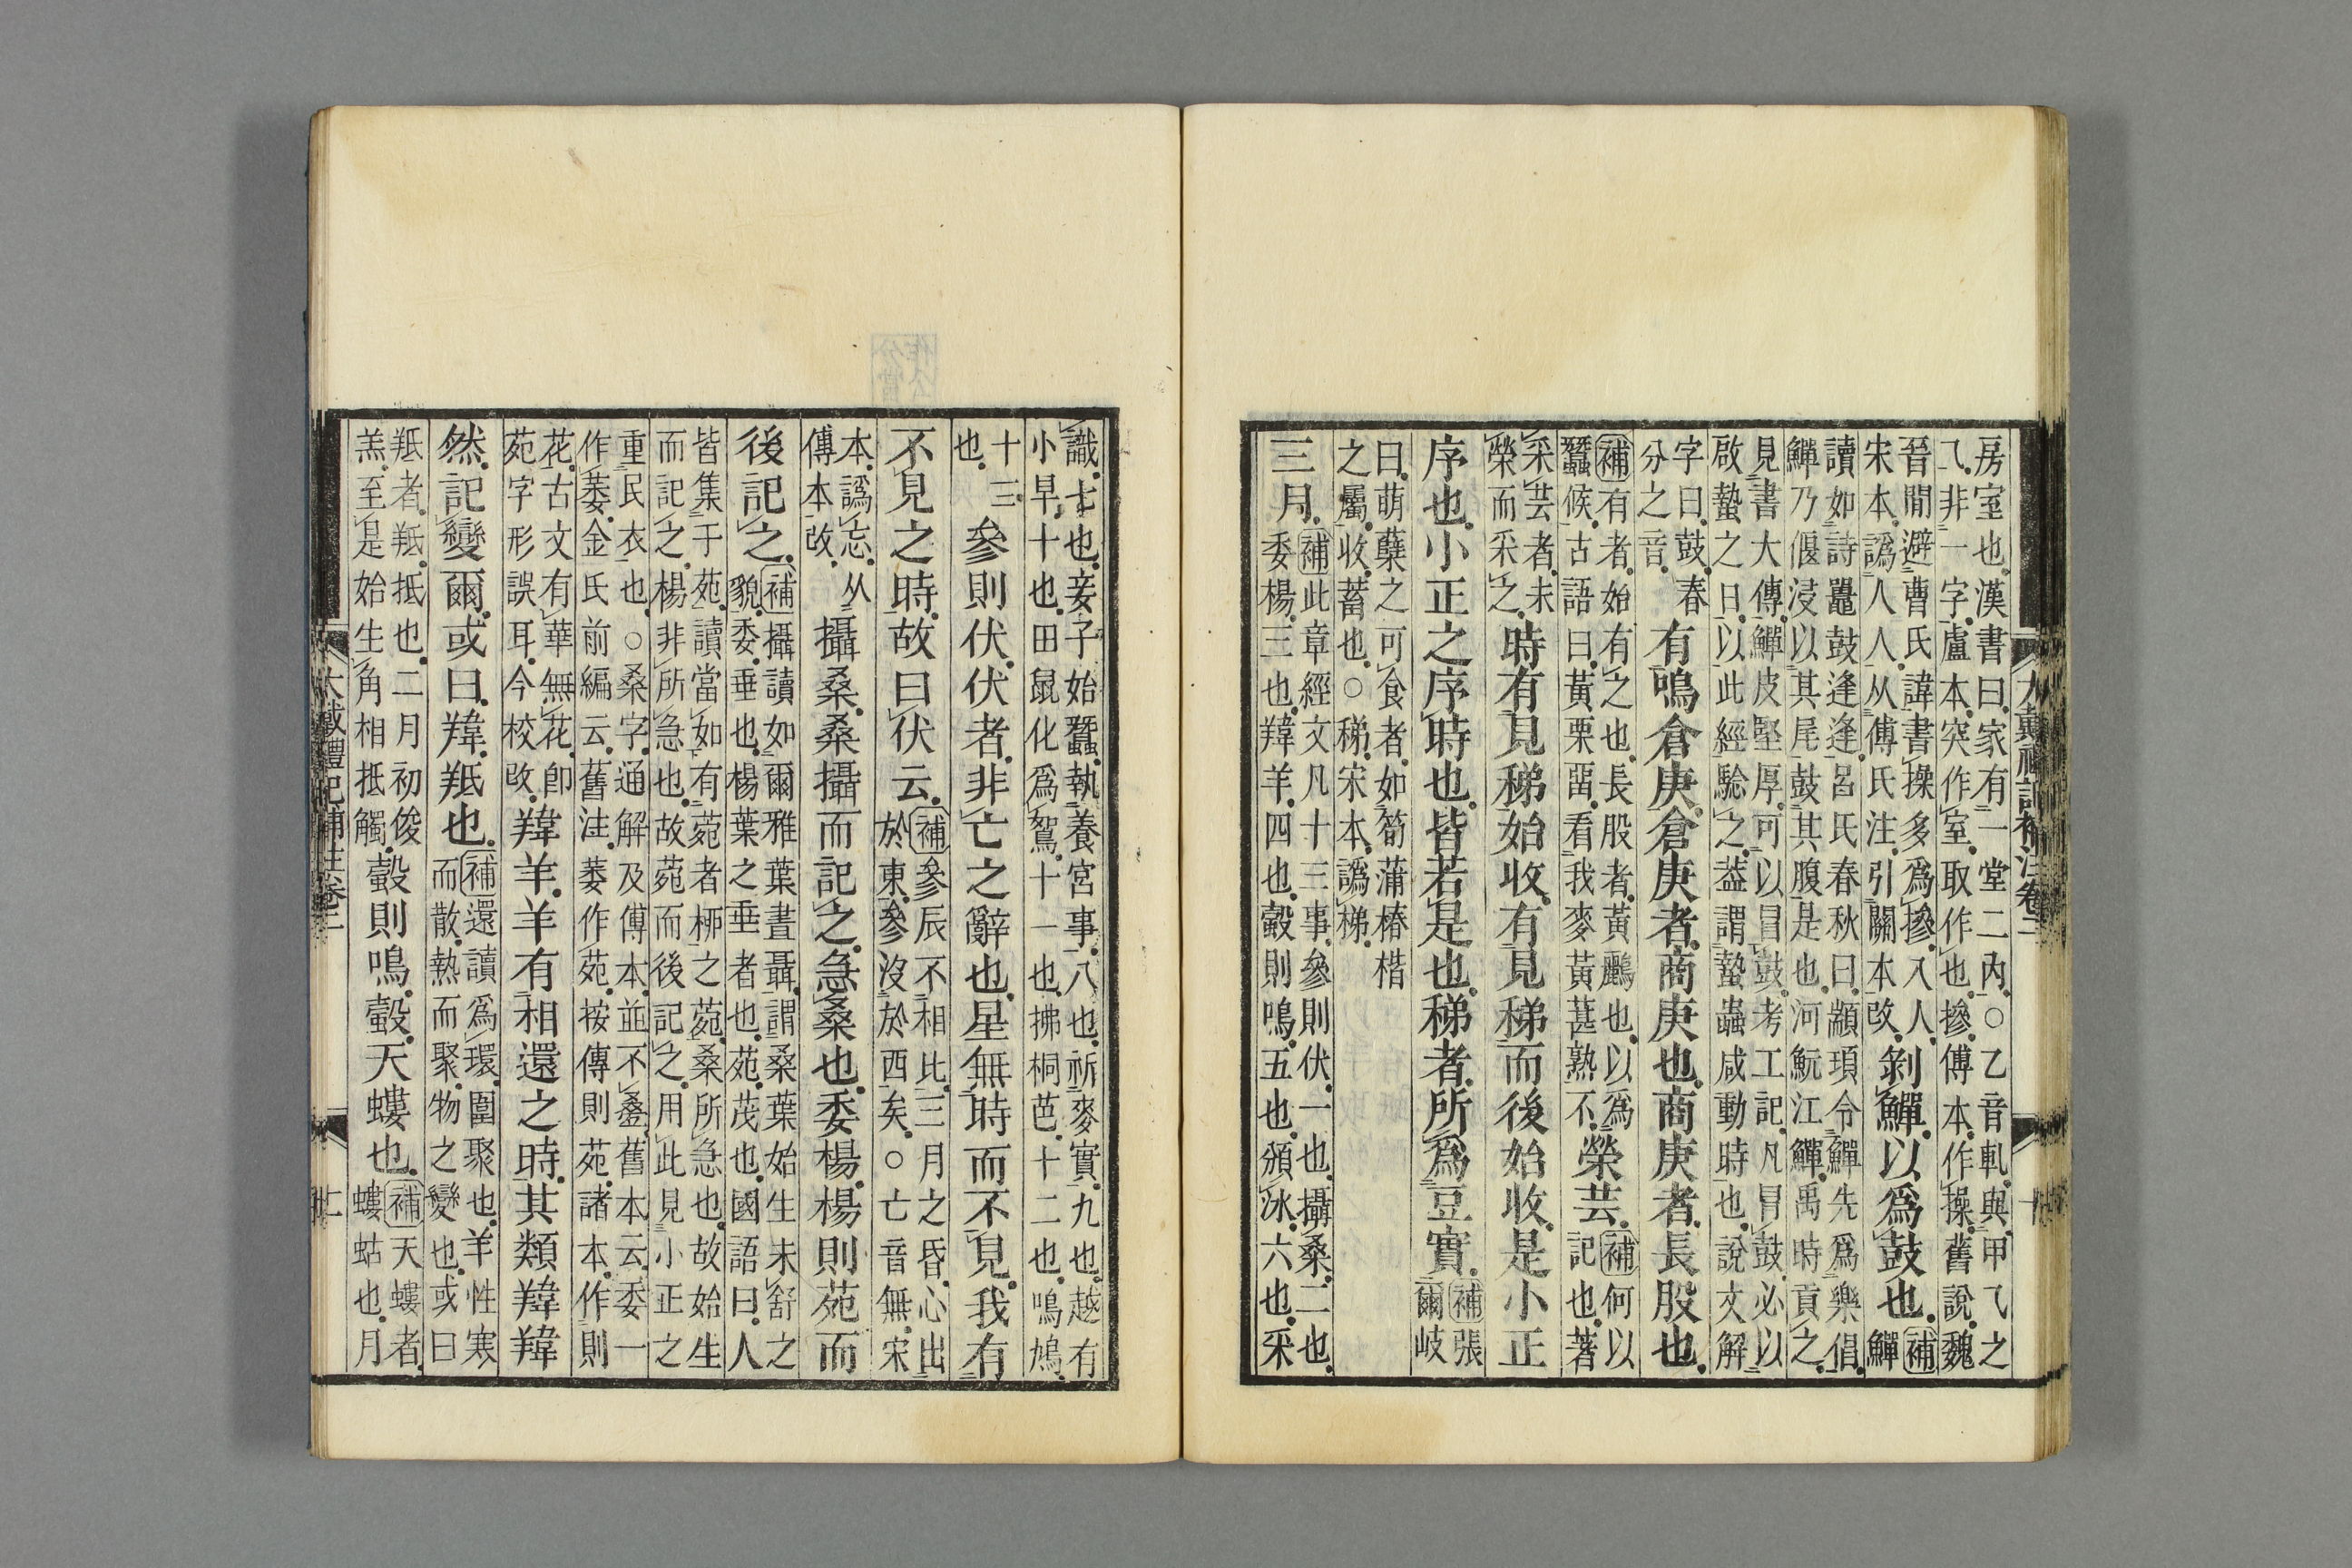 大戴禮記補注卷二
十
房室也漢書曰家有一堂二內○乙音軋與甲乁之
乁非一字盧本突作室取作也摻傳本作操舊說魏
晉閒避曹氏諱書操多爲摻入人
宋本譌人人从傅氏注引關本改
剝鱓以爲鼓也補鱓
讀如詩鼉鼓逢逢呂氏春秋曰顓頊令鱓先爲樂倡
鱓乃偃浸以其尾鼓其腹是也河魭江鱓禹時貢之
見書大傳鱓皮堅厚可以冒鼓考工記凡冒鼓必以
啟蟄之日以此經驗之葢謂蟄蟲咸動時也說文解
字曰鼓春
分之音
有鳴倉庚倉庚者商庚也商庚者長股也
補有者始有之也長股者黃鸝也以爲
蠶候古語曰黃栗畱看我麥黃葚熟不
榮芸補何以
記也著
采芸者未
榮而采之
時有見稊始收有見稊而後始收是小正
序也小正之序時也皆若是也稊者所爲豆實補張
爾岐
曰萌蘖之可食者如筍蒲椿楷
之屬收蓄也○稊宋本譌梯
三月補此章經文凡十三事參則伏一也攝桑二也
委楊三也羍羊四也縠則鳴五也頒冰六也采
識七也妾子始蠶執養宮事八也祈麥實九也越有
小旱十也田鼠化爲鴽十一也拂桐芭十二也鳴鳩
十三
也
參則伏伏者非亡之辭也星無時而不見我有
不見之時故曰伏云補參辰不相比三月之昏心出
於東參沒於西矣○亡音無宋
本譌忘从
傳本改
攝桑桑攝而記之急桑也委楊楊則苑而
後記之補攝讀如爾雅葉晝聶謂桑葉始生未舒之
貌委垂也楊葉之垂者也苑茂也國語曰人
皆集于苑讀當如有菀者柳之菀桑所急也故始生
而記之楊非所急也故菀而後記之用此見小正之
重民衣也○桑字通解及傅本並不叠舊本云委一
作萎金氏前編云舊注萎作苑按傳則苑諸本作則
花古文有華無花卽
苑字形誤耳今校改
羍羊羊有相還之時其類羍羍
然記變爾或曰羍羝也補還讀爲環圍聚也羊性寒
而散熱而聚物之變也或曰
羝者羝抵也二月初俊
羔至是始生角相抵觸
縠則鳴縠天螻也補天螻者
螻蛄也月
大戴禮記補注卷二
十一